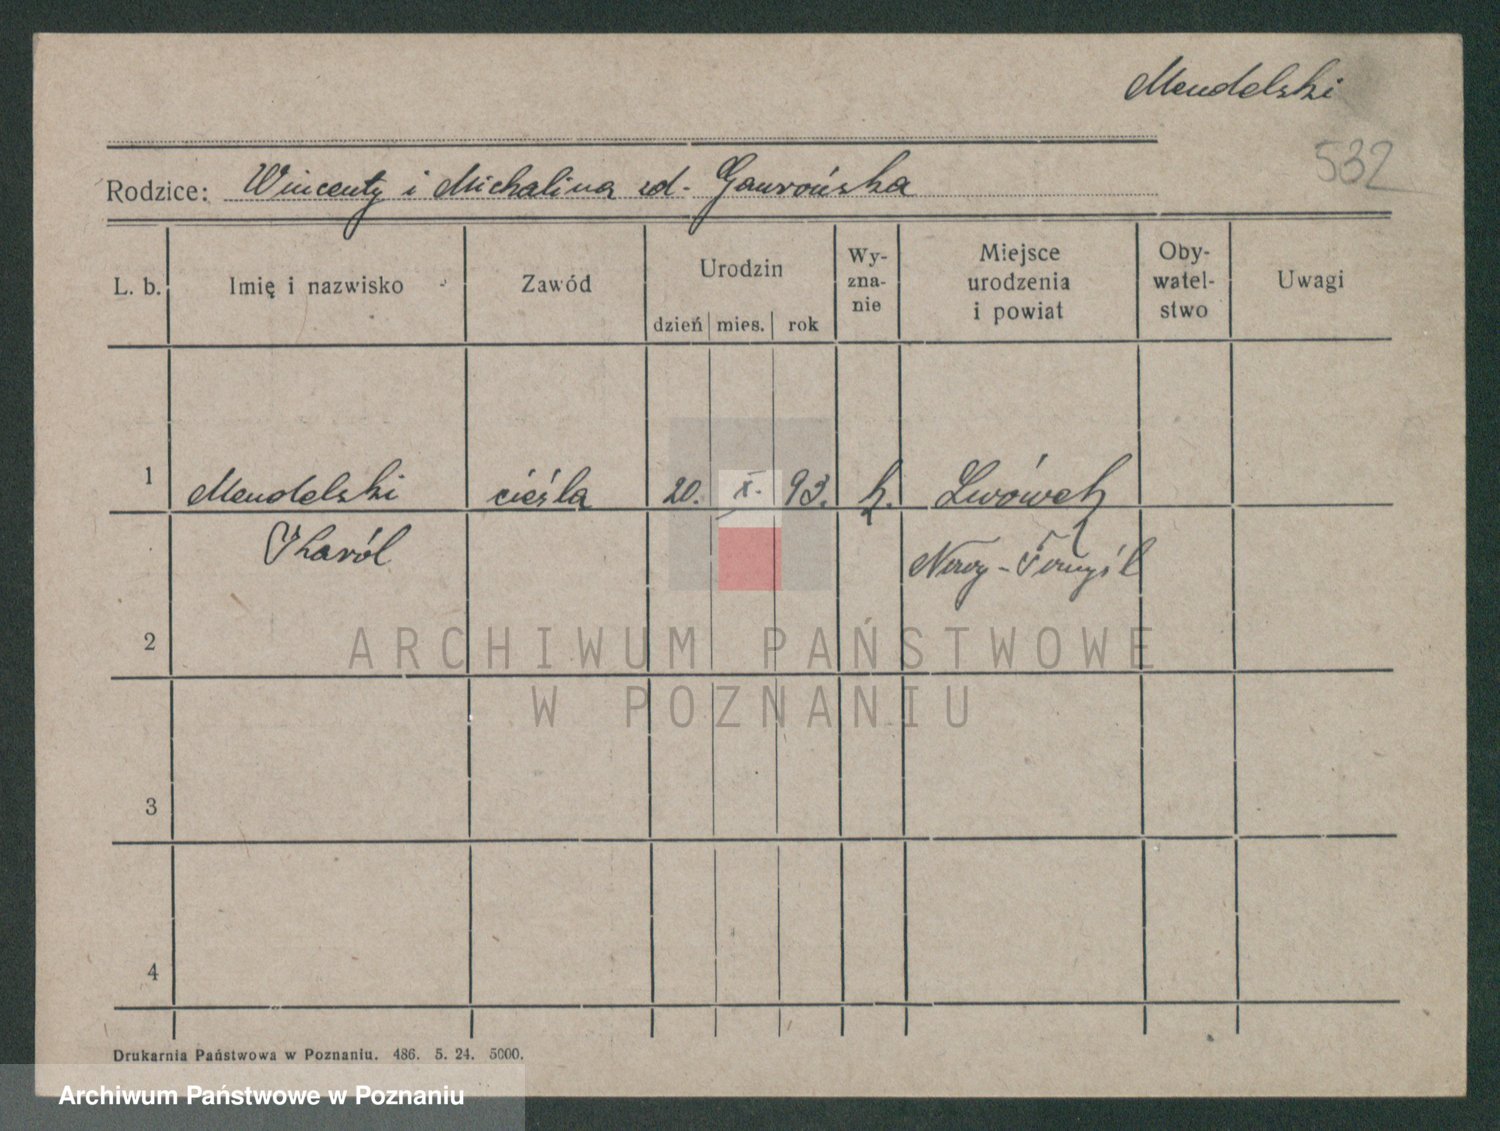 Mendelski
532
Rodzice: Wincenty i Michalina zd. Gawrońska
L. b. Imię i nazwisko Zawód Urodzin dzień mies. rok Wy-zna-nie Miejsce urodzenia i powiat Oby-watel-stwo Uwagi
1 Mendelski cieśla 20. X. 93. k. Lwówek
Karól Nowy-Tomyśl
2
ARCHIWUM PAŃSTWOWE
W POZNANIU
3
4
Drukarnia Państwowa w Poznaniu. 486. 5. 24. 5000.
Archiwum Państwowe w Poznaniu